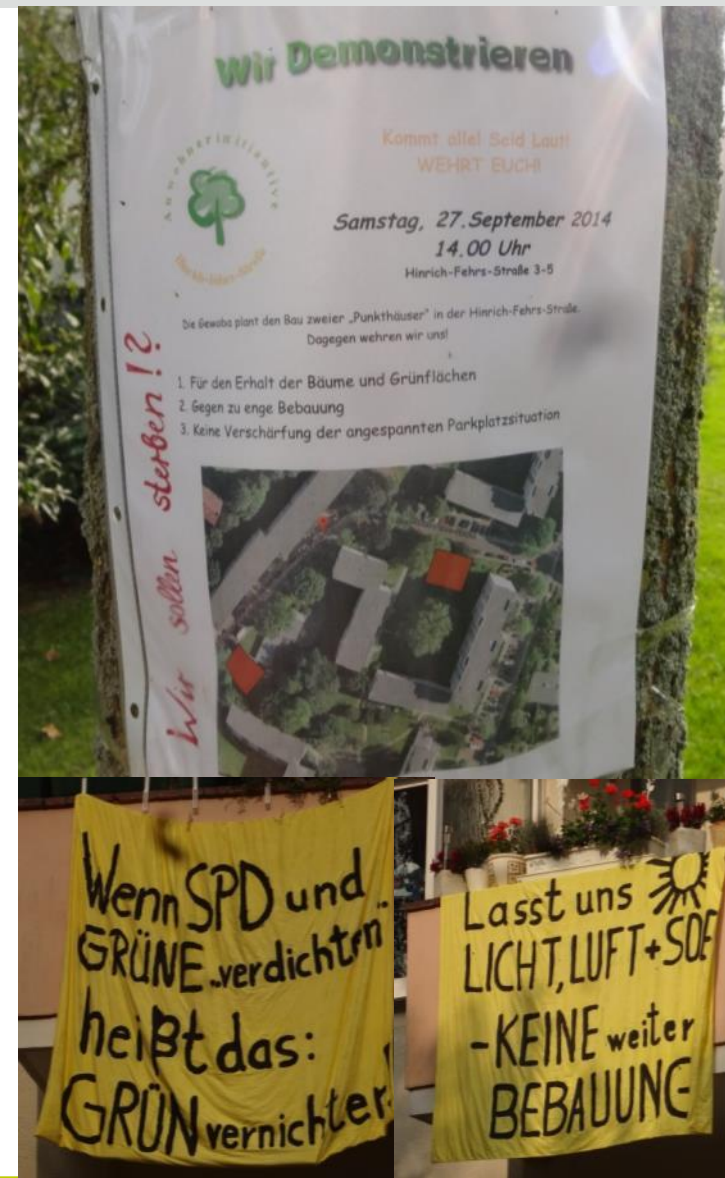 Wir Demonstrieren
Kommt alle! Seid Laut!
WEHRT EUCH!
Anwohnerinitiative
Hinrich-Fehrs-Straße
Samstag, 27.September 2014
14.00 Uhr
Hinrich-Fehrs-Straße 3-5
Die Gewoba plant den Bau zweier „Punkthäuser" in der Hinrich-Fehrs-Straße.
Dagegen wehren wir uns!
1. Für den Erhalt der Bäume und Grünflächen
2. Gegen zu enge Bebauung
3. Keine Verschärfung der angespannten Parkplatzsituation
Wir sollen sterben!?
Wenn SPD und
GRÜNE „verdichten"
heißt das:
GRÜN vernichten
Lasst uns
LICHT, LUFT + SO
- KEINE weiter
BEBAUUNG